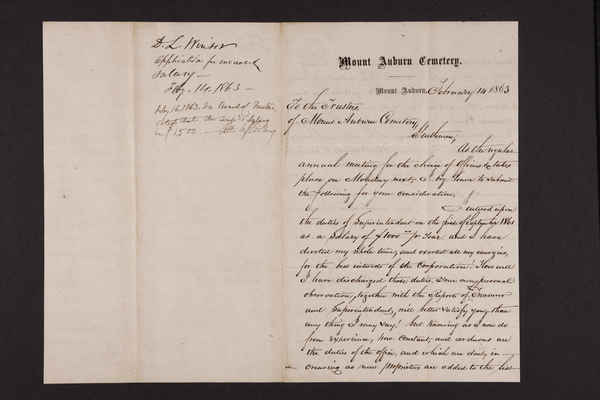 D. L. Winsor
Application for increased
Salary —
Feby. 14. 1863 —
in $1500
Mount Auburn Cemetery.
Mount Auburn, February 14 1863
To the Trustees
of Mount Auburn Cemetery,
Gentlemen,
As the regular
annual meeting for the choice of Officers &c takes
place on Monday next, I beg leave to submit
the following for your consideration,
I entered upon
the duties of Superintendent on the first of September 1861
at a Salary of $1000 pr Year and I have
devoted my whole time, and exerted all my energies,
for the best interests of the Corporation. How well
I have discharged those duties, Your own personal
observation, together with the Reports of Treasurer
and Superintendent, will better satisfy you, than
any thing I may say! but knowing as I now do
from experience, how constant, and arduous are
the duties of the office, and which are daily in-
creasing as new Proprietors are added to the list